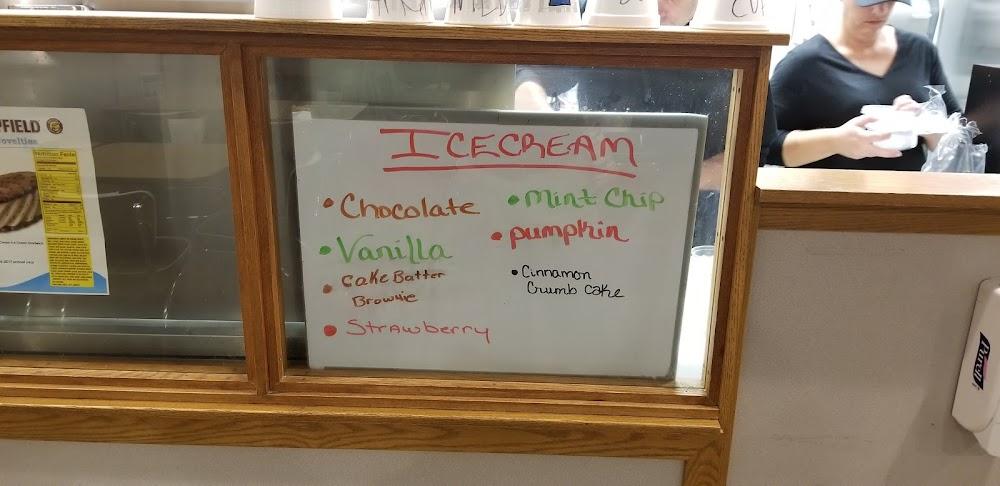 ICECREAM
• Chocolate
• Vanilla
• Cake Batter
Brownie
• Strawberry
• Mint Chip
• pumpkin
• Cinnamon
Crumb Cake
FIELD
Nutrition Facts
Purell